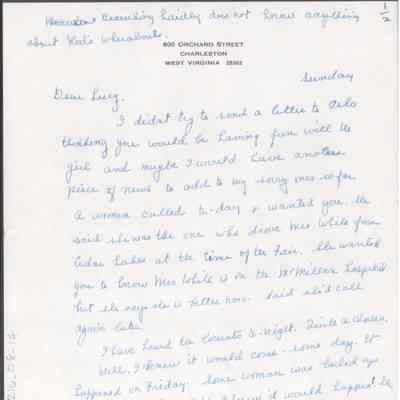 Browning Laidly does not know anything
about Kate's whereabouts.
1-2
800 ORCHARD STREET
CHARLESTON
WEST VIRGINIA 25302
Sunday
Dear Lucy,
I didn't try to send a letter to
thinking you would be having fun with the
girl and maybe I would have another
piece of news to add to my sorry ones so far
A woman called to-day & wanted you. She
said she was the one who drove Mrs White from
Cedar Lakes at the time of the Fair. She wanted
you to know Mrs White is in the McMillan hospital
but she says she is better now. Said she'd call
again later.
I have heard the to-night. Quite a
Well, I knew it would come - some day. It
happened on Friday. Some woman was
I knew it would happen! he